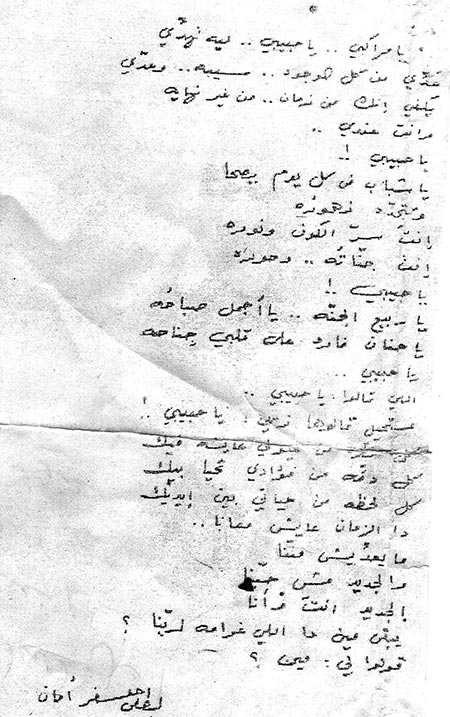 يا مراكبي .. يا حبيبي .. ليه نهدّي
نعدّي من كل الوجود .. نسيبه .. ونعدّي
يكفي إنك من زمان .. من غير نهايه
وانت عندي ..
يا حبيبي !!
يا شباب في كل يوم يصحا
وتتجدّد زهوره
إنتَ سرّ الكون ونوره
إنتَ جنّاته .. وحوره
يا حبيبي !!
يا ربيع الجنّه .. يا أجمل صباحُه
يا حنان فارد على قلبي جناحه
يا حبيبي ..
اللي قالوا يا حبيبي ..
مستحيل قالوها زيّي ! يا حبيبي !
كل من عيوني عايشه فيك
كل دقّه من فؤادي تحيا بيك
كل لحظه من حياتي بين إيديك
دا الزمان عايش معانا ..
ما يعدّيش مننا
والجديد مش حبّنا
الجديد انتَ وأنا
يبقى مين دا اللي غرامه لربّنا ؟
قولوا لي : مين ؟
لطفي جعفر أمان